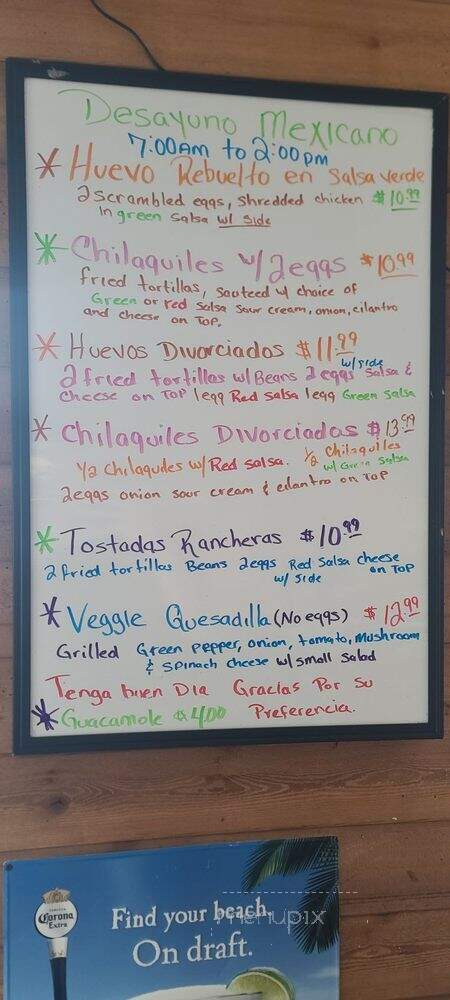 Desayuno Mexicano
7:00AM to 2:00pm
* Huevo Rebuelto en Salsa Verde
2 scrambled eggs, shredded chicken $10.99
in green salsa w/ side
* Chilaquiles w/2eggs $10.99
fried tortillas, sauteed w/ choice of
Green or red salsa sour cream, onion, cilantro
and cheese on Top.
* Huevos Divorciados $11.99
w/side
2 fried tortillas w/Beans 2eggs salsa &
cheese on Top 1egg Red salsa 1egg Green salsa
* Chilaquiles Divorciadas $13.99
1/2 chilaquiles w/ Red salsa. 1/2 Chilaquiles
w/ Green Salsa
2eggs onion sour cream & cilantro on Top
* Tostadas Rancheras $10.99
2 fried tortillas Beans 2eggs Red Salsa cheese
w/ side on Top
* Veggie Quesadilla (No eggs) $12.99
Grilled Green pepper, onion, tomato, Mushroom
& spinach cheese w/ small salad
Tenga buen Dia Gracias Por Su
* Guacamole $4.00 Preferencia.
Corona
Extra
Find your beach.
On draft.
menupix